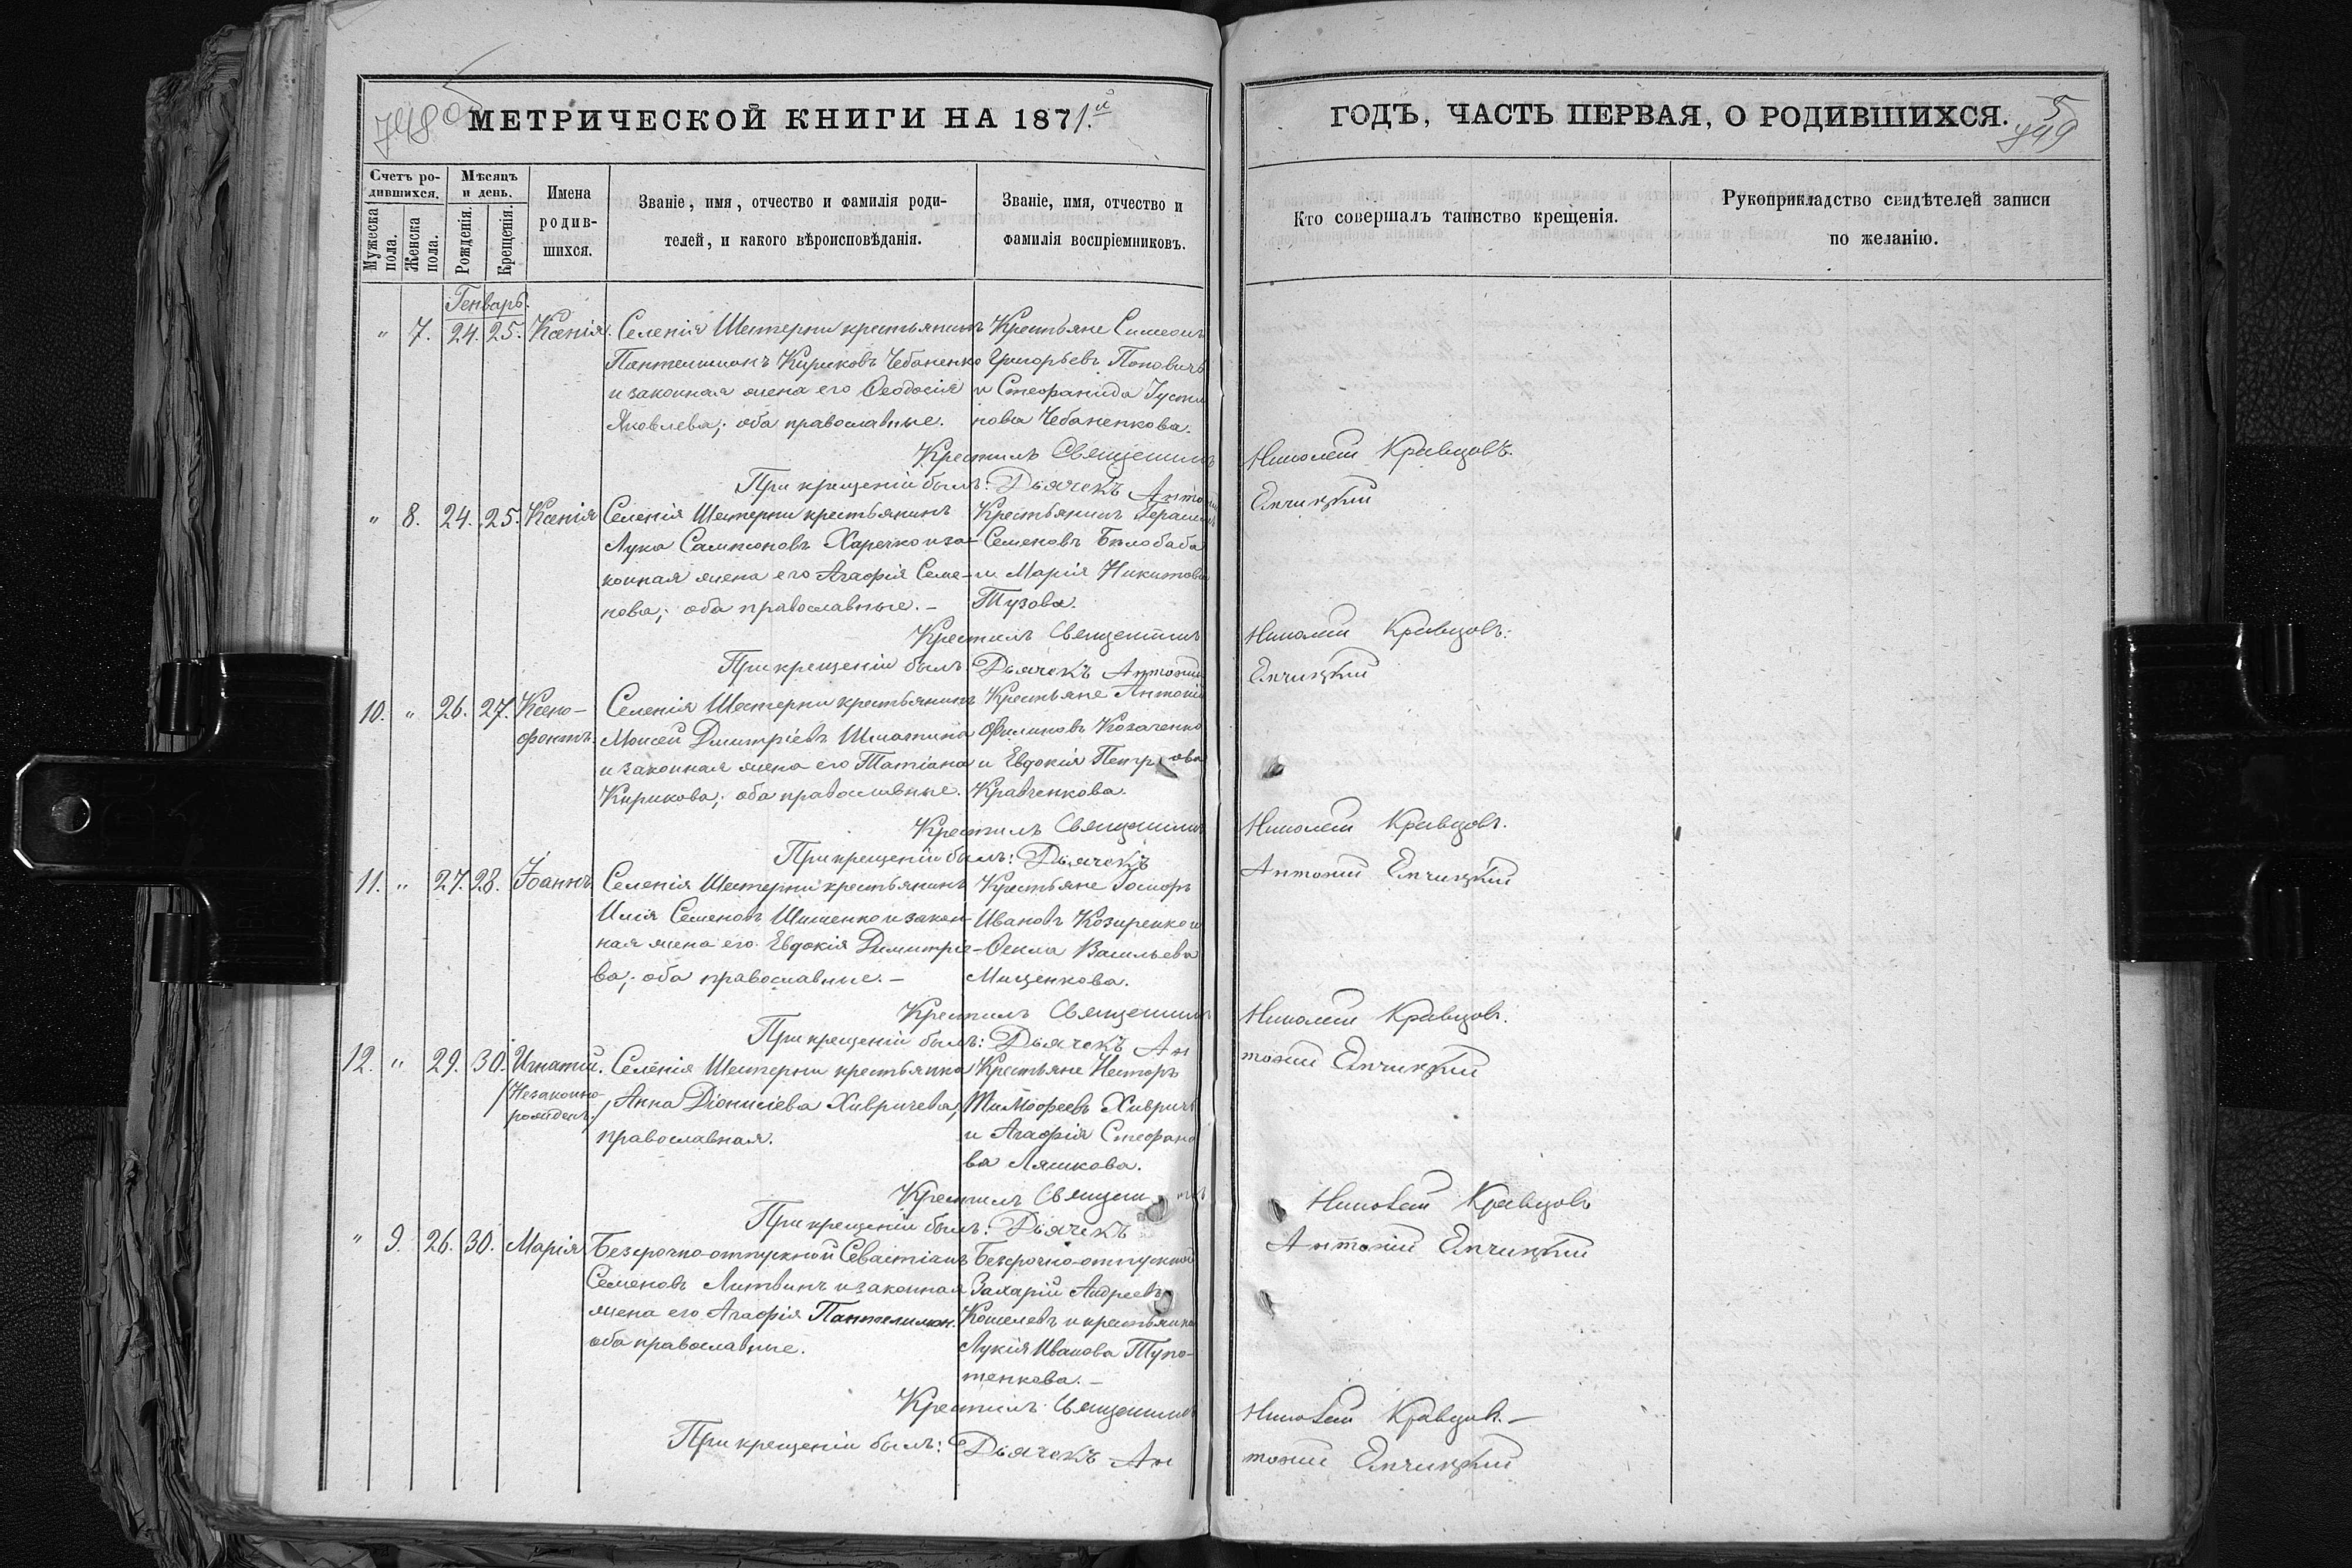 748 об
МЕТРИЧЕСКОЙ КНИГИ НА 1871.й
Счетъ ро-
дившихся.
Мѣсяцъ
и день.
Мужеска
пола.
Женска
пола.
Рожденія.
Крещенія.
Имена
родив-
шихся.
Званіе, имя, отчество и фамилія роди-
телей, и какого вѣроисповѣданія.
Званіе, имя, отчество и
фамилія воспріемниковъ.
ГОДЪ, ЧАСТЬ ПЕРВАЯ, О РОДИВШИХСЯ.
5
749
Кто совершалъ таинство крещенія.
Рукоприкладство свидѣтелей записи
по желанію.
Генварь.
" 7. 24. 25. Ксенія.
Селенія Шестерни крестьянинъ
Пантелимонъ Кириковъ Чебаненко
и законная жена его Ѳеодосія
Яковлева; оба православные.
Крестьяне Симеонъ
Григорьевъ Поповичъ
и Стефанида Іусти
нова Чебаненкова.
Крестилъ Священникъ Николай Кравцовъ.
При крещеніи былъ: Дьячекъ Антоній
" 8. 24. 25. Ксенія
Селенія Шестерни крестьянинъ
Лука Сампсоновъ Харечко и за-
конная жена его Агафія Семе-
нова; оба православные. –
Крестьянинъ Герасимъ
Семеновъ Бѣлобаба
и Марія Никитова
Тузова.
Крестилъ Священникъ Николай Кравцовъ.
При крещеніи былъ Дьячекъ Антоній
10. " 26. 27. Ксено-
фонтъ.
Селенія Шестерни крестьянинъ
Моисей Дмитріевъ
и законная жена его Татіана
Кирикова; оба православные.
Крестьяне Антоній
Филиповъ Козаченко
и Евдокія Петрова
Кравченкова.
Крестилъ Священникъ Николай Кравцовъ.
При крещеніи былъ: Дьячекъ Антоній
11. " 27. 28. Іоаннъ.
Селенія Шестерни крестьянинъ
Илія Семеновъ Шишенко и закон-
ная жена его Евдокія Димитріе-
ва; оба православные. –
Крестьяне
Ивановъ Козиренко и
Ѳекла Васильева
Мищенкова.
Крестилъ Священникъ Николай Кравцовъ.
При крещеніи былъ: Дьячекъ Ан
тоній
12. " 29. 30. Игнатій.
(Незаконно
рожден.)
Селенія Шестерни крестьянка
Анна Діонисіева Хивричева,
православная.
Крестьяне Несторъ
Тимофеевъ Хивричъ
и Агафія Стефано
ва Ляшкова.
Крестилъ Священникъ Николай Кравцовъ
При крещеніи былъ: Дьячекъ Антоній
" 9. 26. 30. Марія
Безсрочно-отпускной Севастіанъ
Семеновъ Литвинъ и законная
жена его Агафія Пантелимон.
оба православные.
Безсрочно-отпускной
Захарій Андреевъ
Кошелевъ и крестьянка
Лукія Иванова Тупо-
тенкова. –
Крестилъ Священникъ Николай Кравцовъ. –
При крещеніи былъ: Дьячекъ Ан
тоній